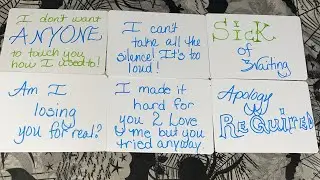 I don't want
ANYONE
to touch you
how I used to!
I can't
take all the
silence! It's too
loud!
SICK
of
Waiting
Am I
losing
you for real?
I made it
hard for
you 2 Love
me but you
tried anyday.
Apology
REQUIRED